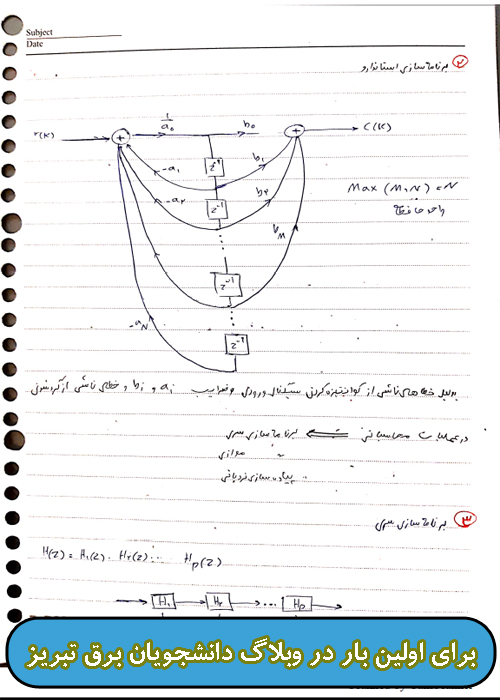 Subject
Date
۲ برنامه سازی استاندارد
r(k)
+
1/a₀
b₀
+
C(k)
z⁻¹
-a₁
b₁
z⁻¹
-a₂
b₂
Max (M,N) = N
واحد حافظه
b_M
z⁻¹
z⁻¹
-a_N
بدلیل خطاهای ناشی از کوانتیزه کردن سیگنال ورودی و ضرایب aᵢ و bᵢ و خطای ناشی از گرد شدن
در عملیات محاسباتی ⟸ برنامه سازی سری
〃 موازی
پیاده سازی نردبانی
۳ برنامه سازی سری
H(z) = H₁(z) · H₂(z) ... H_p(z)
H₁ H₂ ... H_p
برای اولین بار در وبلاگ دانشجویان برق تبریز